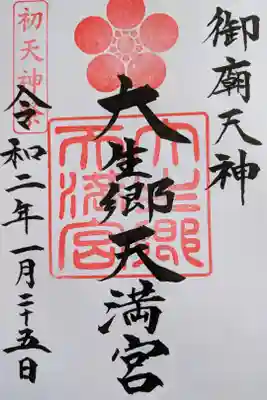 御廟天神
大生郷天満宮
大生郷
天満宮
初天神祭
令和二年一月二十五日